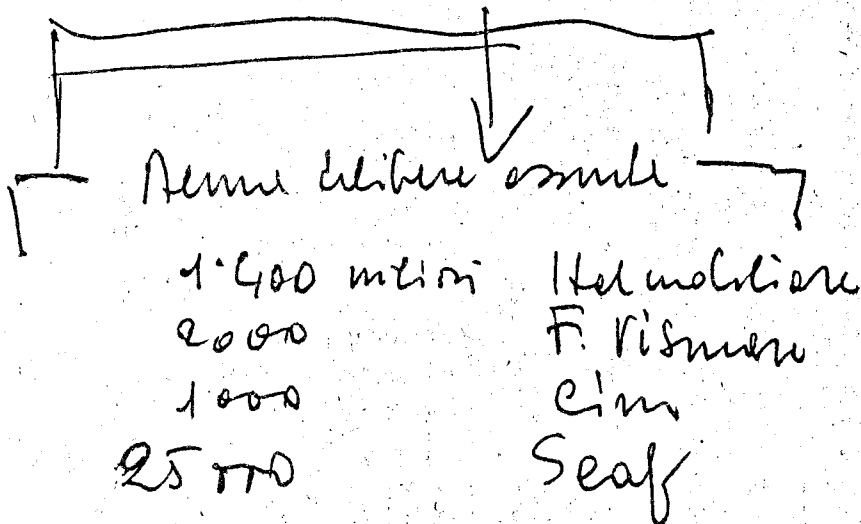 Alcune delibere assunte
1.400 milioni Italmobiliare
2000 F. Vismara
1000 Cim
25000 Seaf